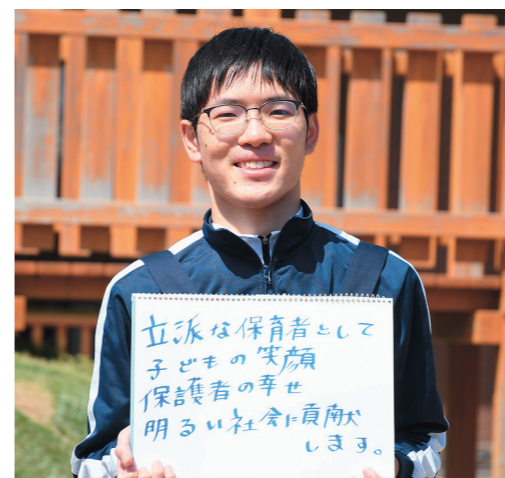 立派な保育者として
子どもの笑顔
保護者の幸せ
明るい社会に貢献
します。